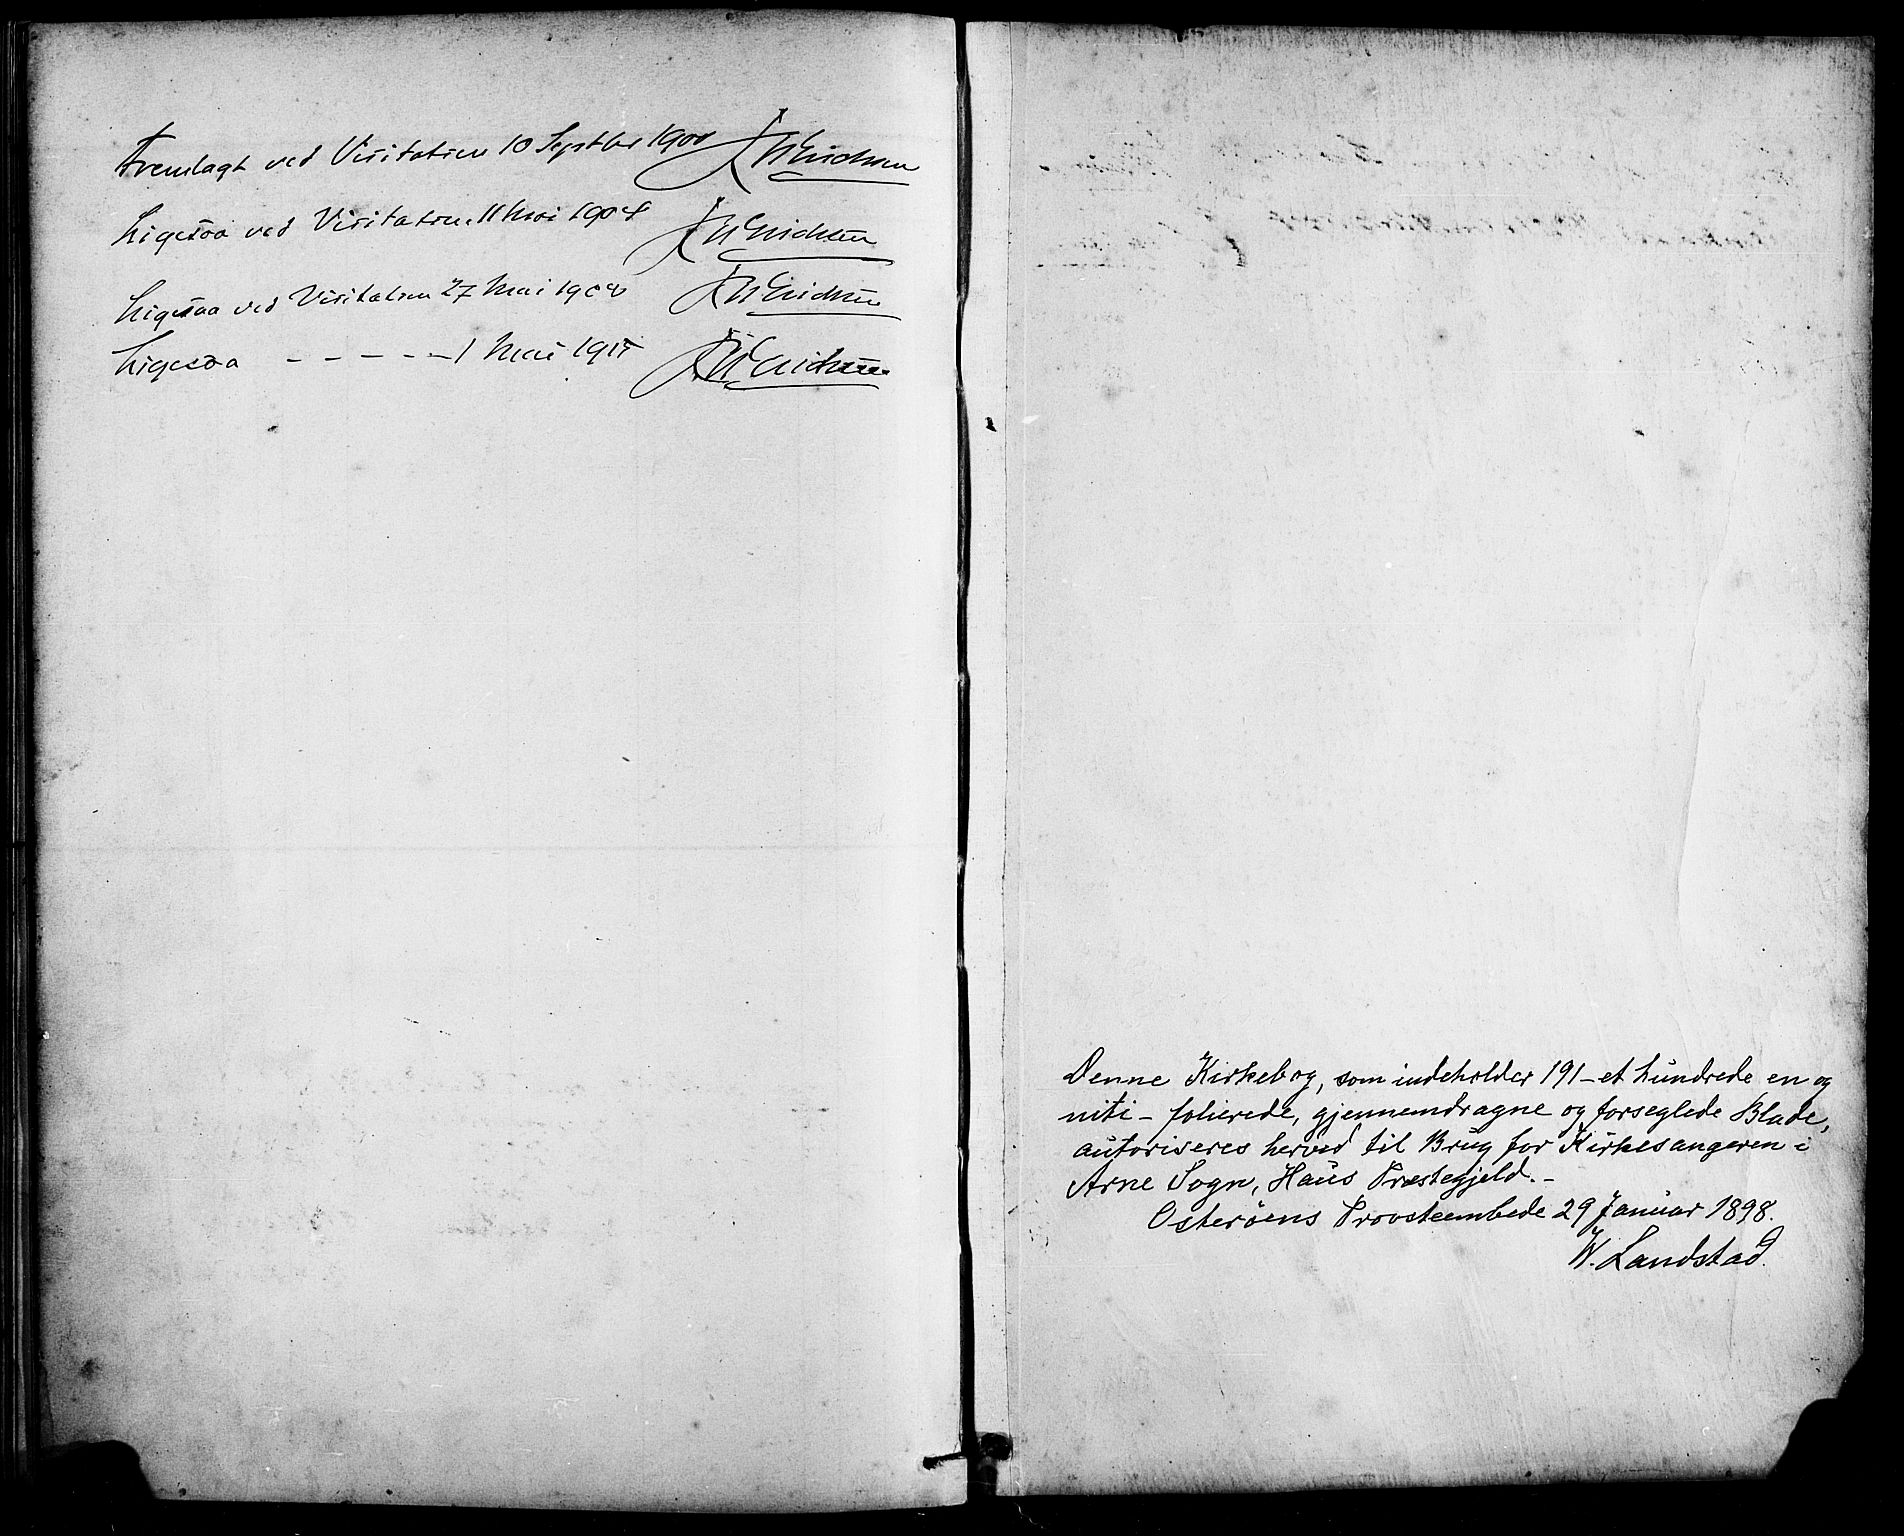 Fremlagt ved Visitatsen 10 Septbr 1900 J W Erichsen
Ligesaa ved Visitatsen 11 Mai 1904 J W Erichsen
Ligesaa ved Visitatsen 27 Mai 1908 J W Erichsen
Ligesaa - - - - - 1 Mai 1915 J W Erichsen
Denne Kirkebog, som indeholder 191 - et hundrede en og
niti - folierede, gjennemdragne og forseglede Blade,
autoriseres herved til Brug for Kirkesangeren i
Arne Sogn, Haus Præstegjeld. -
Osterøens Provsteembede 29 Januar 1898.
W. Landstad.